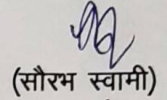 (सौरभ स्वामी)